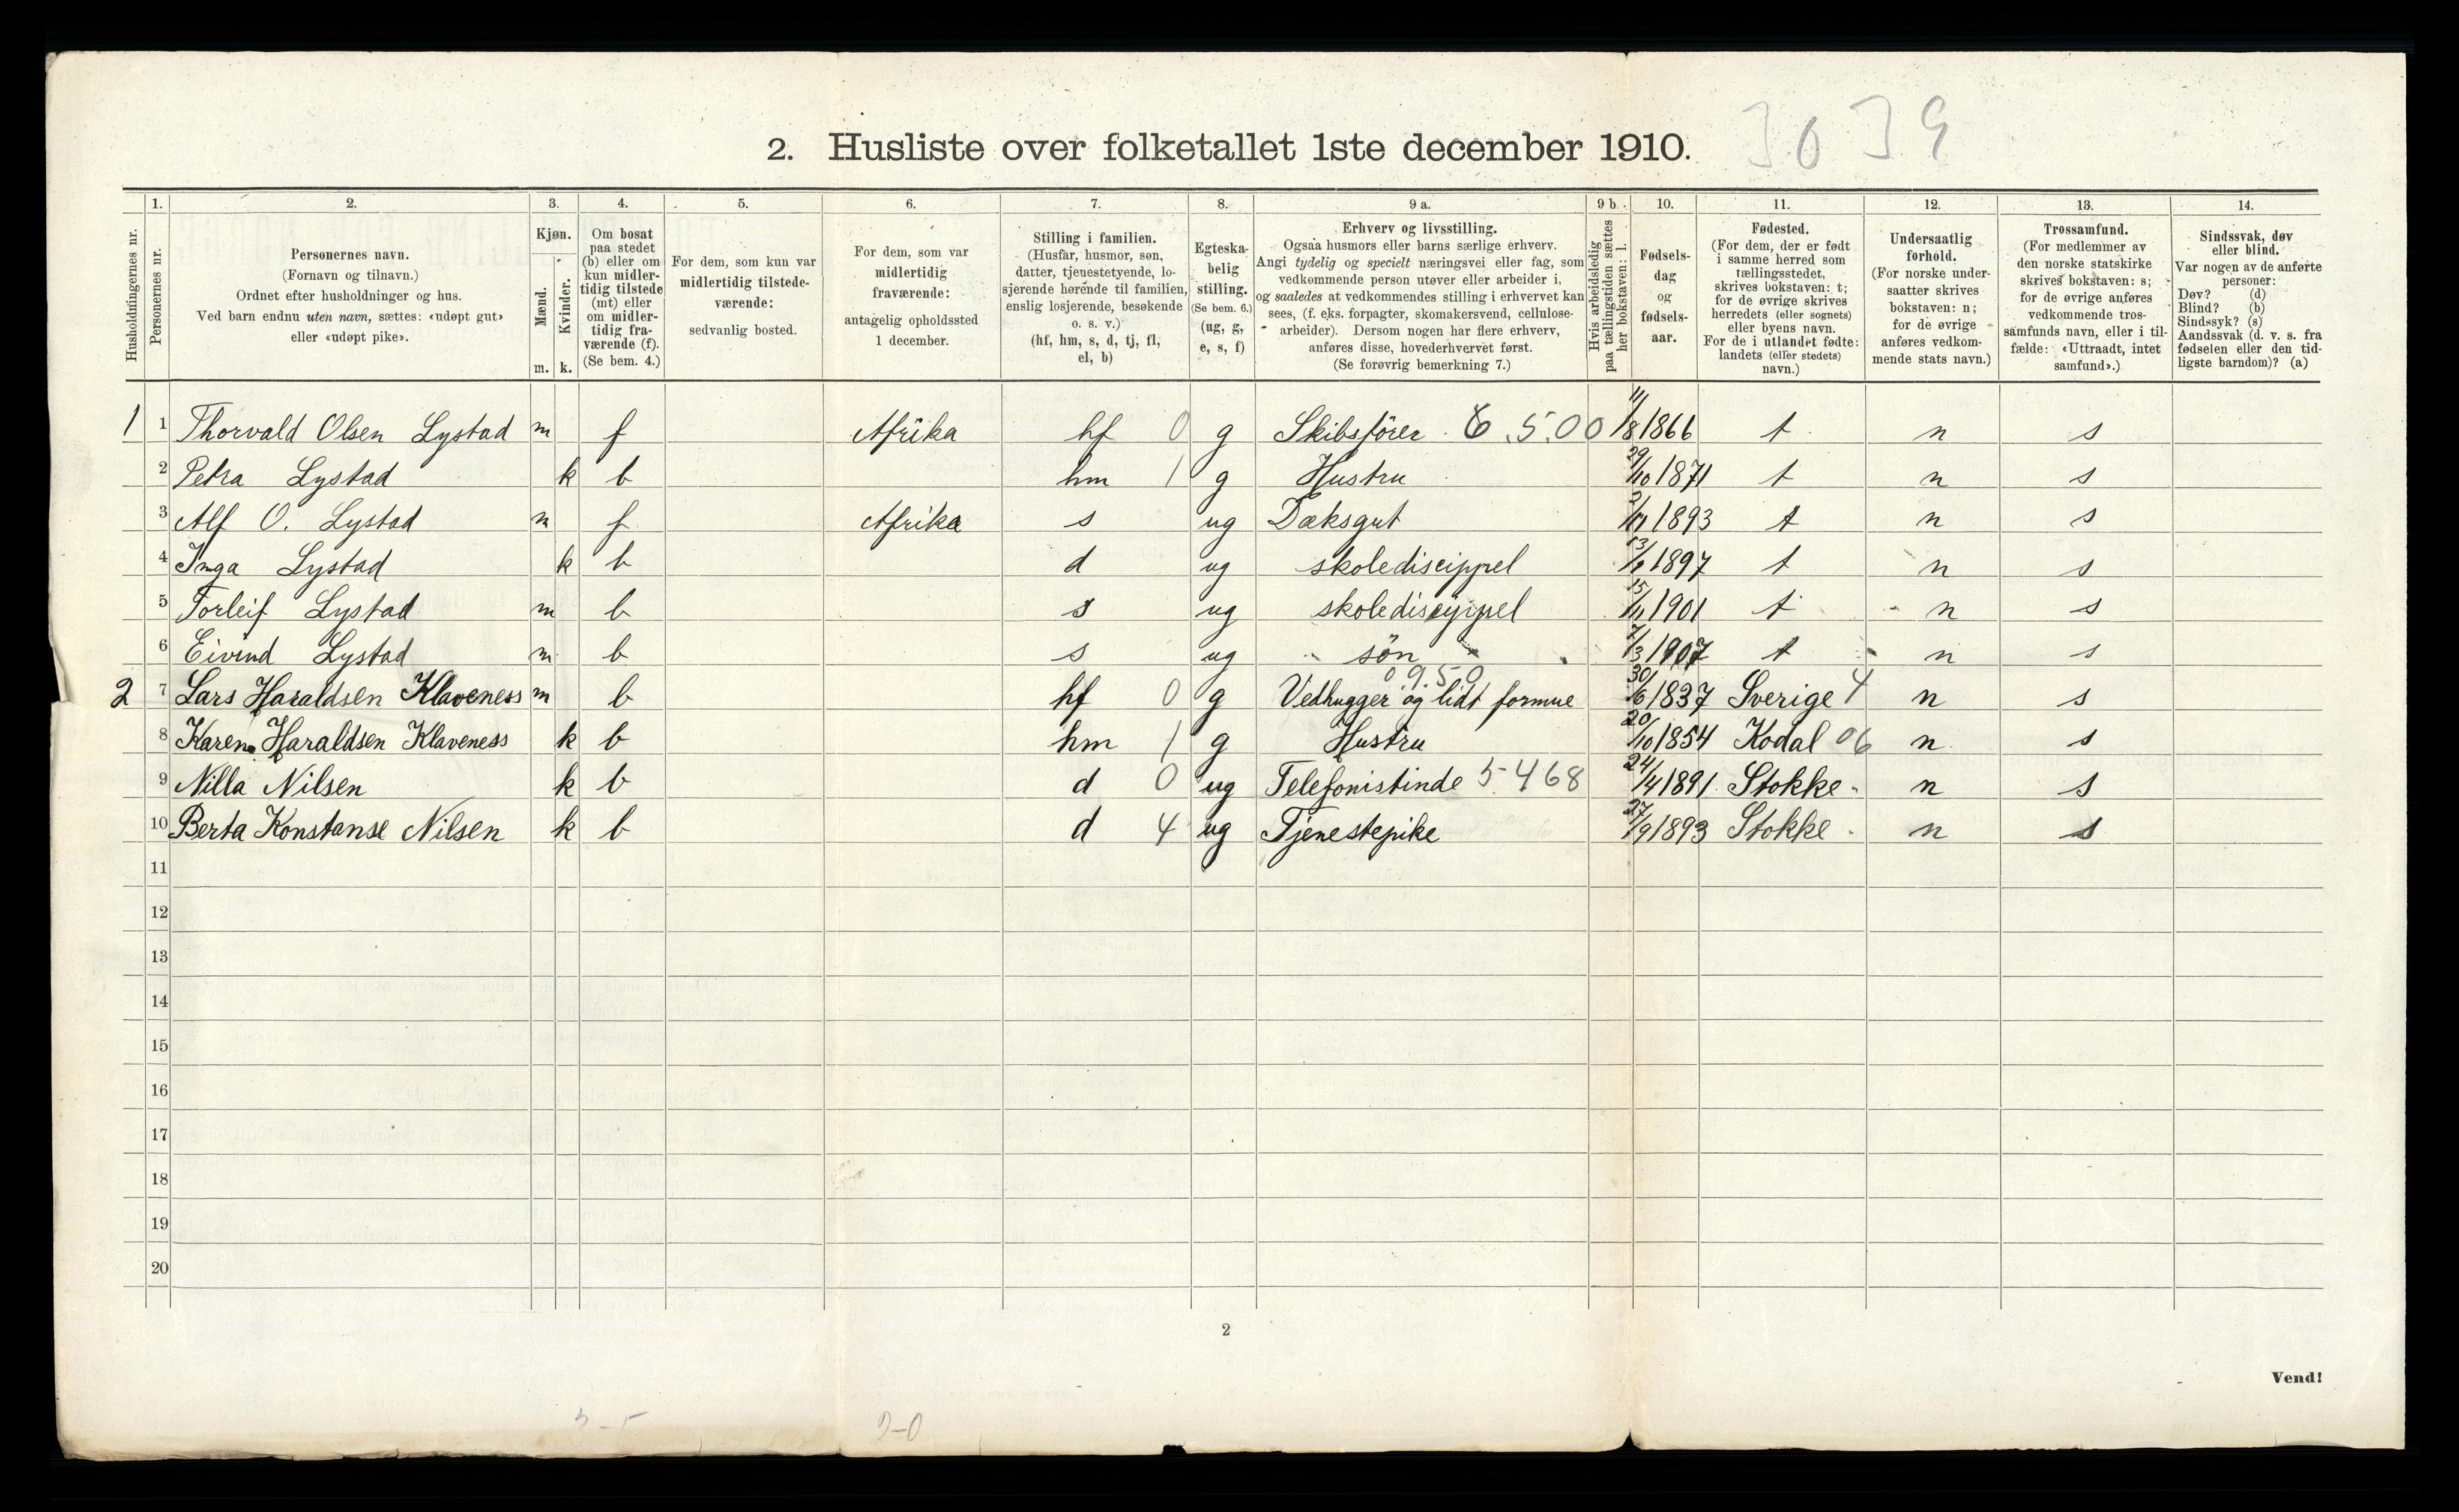 3039
2. Husliste over folketallet 1ste december 1910.
Husholdningernes nr.
1. Personernes nr.
2. Personernes navn.
(Fornavn og tilnavn.)
Ordnet efter husholdninger og hus.
Ved barn endnu uten navn, sættes: «udøpt gut»
eller «udøpt pike».
3. Kjøn.
Mænd. Kvinder.
m. k.
4. Om bosat
paa stedet
(b) eller om
kun midler-
tidig tilstede
(mt) eller
om midler-
tidig fra-
værende (f).
(Se bem. 4.)
5. For dem, som kun var
midlertidig tilstede-
værende:
sedvanlig bosted.
6. For dem, som var
midlertidig
fraværende:
antagelig opholdssted
1 december.
7. Stilling i familien.
(Husfar, husmor, søn,
datter, tjenestetyende, lo-
sjerende hørende til familien,
enslig losjerende, besøkende
o. s. v.)
(hf, hm, s, d, tj, fl,
el, b)
8. Egteska-
belig
stilling.
(Se bem. 6.)
(ug, g,
e, s, f)
9 a. Erhverv og livsstilling.
Ogsaa husmors eller barns særlige erhverv.
Angi tydelig og specielt næringsvei eller fag, som
vedkommende person utøver eller arbeider i,
og saaledes at vedkommendes stilling i erhvervet kan
sees, (f. eks. forpagter, skomakersvend, cellulose-
arbeider). Dersom nogen har flere erhverv,
anføres disse, hovederhvervet først.
(Se forøvrig bemerkning 7.)
9 b. Hvis arbeidsledig
paa tællingstiden sættes
her bokstaven: l.
10. Fødsels-
dag
og
fødsels-
aar.
11. Fødested.
(For dem, der er født
i samme herred som
tællingsstedet,
skrives bokstaven: t;
for de øvrige skrives
herredets (eller sognets)
eller byens navn.
For de i utlandet fødte:
landets (eller stedets)
navn.)
12. Undersaatlig
forhold.
(For norske under-
saatter skrives
bokstaven: n;
for de øvrige
anføres vedkom-
mende stats navn.)
13. Trossamfund.
(For medlemmer av
den norske statskirke
skrives bokstaven: s;
for de øvrige anføres
vedkommende tros-
samfunds navn, eller i til-
fælde: «Uttraadt, intet
samfund».)
14. Sindssvak, døv
eller blind.
Var nogen av de anførte
personer:
Døv? (d)
Blind? (b)
Sindssyk? (s)
Aandssvak (d. v. s. fra
fødselen eller den tid-
ligste barndom)? (a)
1 1 Thorvald Olsen Lystad m f Afrika hf 0 g Skibsfører 6.500 11/8 1866 t n s
2 Petra Lystad k b hm 1 g Hustru 29/10 1871 t n s
3 Alf O. Lystad m f Afrika s ug Dæksgut 1893 t n s
4 Inga Lystad k b d ug skolediscippel 1897 t n s
5 Torleif Lystad m b s ug skolediscyppel 15/11 1901 t n s
6 Eivind Lystad m b s ug søn 7/3 1907 t n s
0.9.50
2 7 Lars Haraldsen Klaveness m b hf 0 g Vedhugger og lidt formue 30/6 1837 Sverige 4 n s
8 Karen Haraldsen Klaveness k b hm 1 g Hustru 20/10 1854 Kodal 06 n s
9 Nilla Nilsen k b d 0 ug Telefonistinde 5468 24/4 1891 Stokke n s
10 Berta Konstanse Nilsen k b d 4 ug Tjenestepike 27/9 1893 Stokke n s
11
12
13
14
15
16
17
18
19
20
2
Vend!
2-0